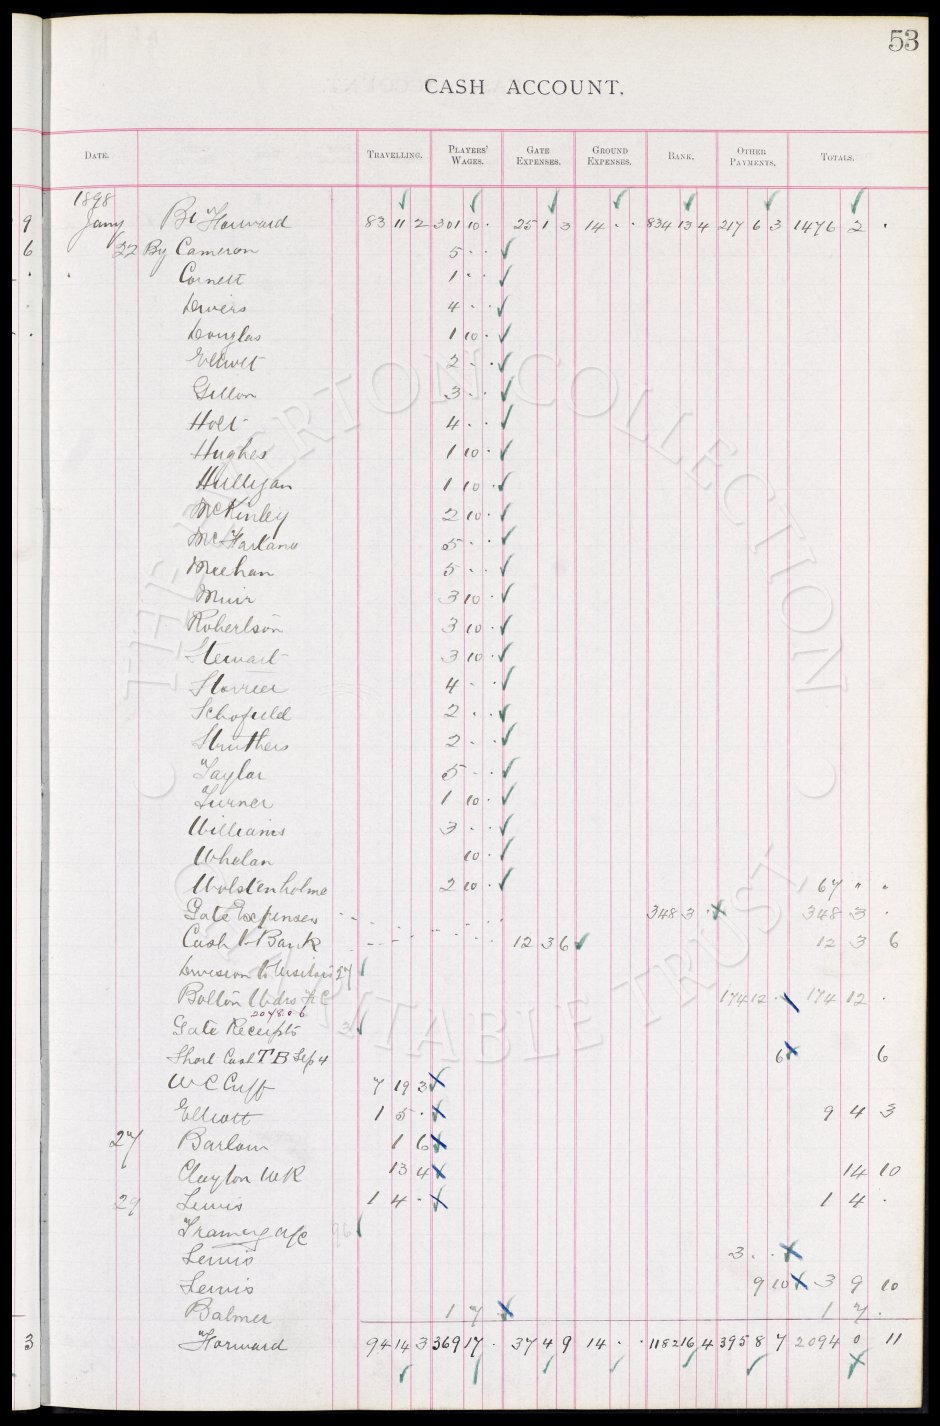 53
CASH ACCOUNT.
DATE. TRAVELLING. PLAYERS' WAGES. GATE EXPENSES. GROUND EXPENSES. BANK. OTHER PAYMENTS. TOTALS.
1898
9 Jany Bt Forward 83 11 2 301 10 . 25 1 3 14 . . 834 13 4 217 6 3 1476 2 .
6 22 By Cameron 5 . .
Cornett 1 . .
Divers 4 . .
Douglas 1 10 .
Elliott 2 . .
Gillon 3 . .
Holt 4 . .
Hughes 1 10 .
Hulligan 1 10 .
McKinley 2 10 .
McFarlane 5 . .
Meehan 5 . .
Muir 3 10 .
Robertson 3 10 .
Stewart 3 10 .
Storrier 4 . .
Schofield 2 . .
Struthers 2 . .
Taylor 5 . .
Turner 1 10 .
Williams 3 . .
Whelan 10 .
Wolstenholme 2 10 . 67 " "
Gate Expenses 348 3 . 348 3 .
Cash to Bank 12 3 6 12 3 6
Division to Visitors 27
Bolton Wdrs FC 174 12 . 174 12 .
207 8. 0. 6
Gate Receipts 3
Short Cash TB Sep 4 6 6
W C Cuff 7 19 3
Elliott 1 5 . 9 4 3
27 Barlow 1 6
Clayton WR 13 4 14 10
29 Lewis 1 4 . 1 4 .
Framing a/c 96
Lewis 3 . .
Lewis 9 10 3 9 10
Balmer 1 7 . 1 7 .
3 Forward 94 14 3 369 17 . 37 4 9 14 . . 1182 16 4 395 8 7 2094 0 11
© THE EVERTON COLLECTION CHARITABLE TRUST